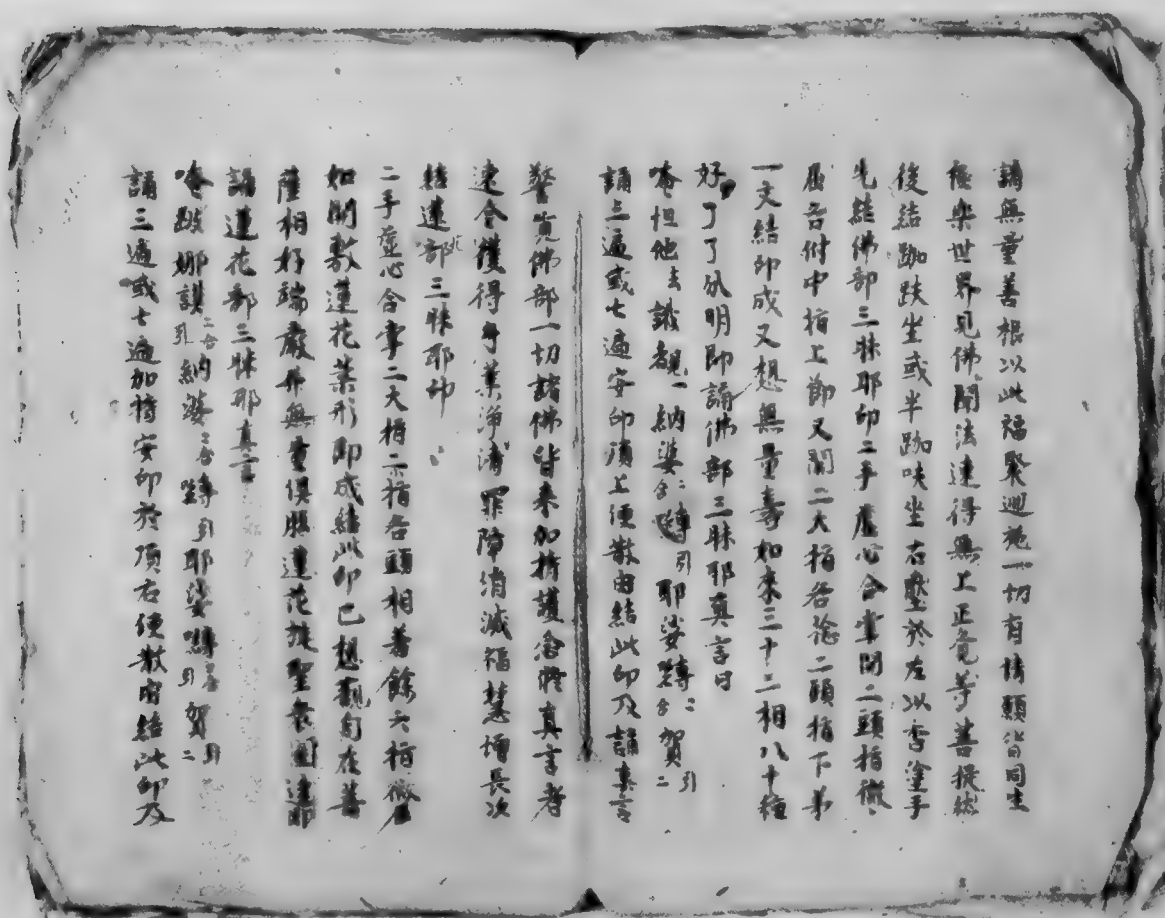 諸無量善根以此福聚迴施一切有情願皆同生
極楽世界見佛聞法速得無上正覚等菩提然
後結跏趺坐或半跏趺坐右壓於左以香塗手
先結佛部三昧耶印二手虛心合掌開二頭指微
屈各附中指上節又開二大指各捻二頭指下弟
一文結印成又想無量壽如來三十二相八十種
好了了分明即誦佛部三昧耶真言曰
唵怛他去誐覩一納婆二合嚩引耶娑嚩二合賀引二
誦三遍或七遍安印頂上便散由結此印及誦真言
警覚佛部一切諸佛皆来加持護念修真言者
速令獲得身業淨清罪障消滅福慧增長次
結蓮部三昧耶印
二手虛心合掌二大指二小指各頭相著餘六指微屈
如開敷蓮花葉形即成結此印已想觀自在菩
薩相好端嚴并無量俱胝蓮花族聖衆圍遶即
誦蓮花部三昧耶真言
唵跛娜謨二合引納婆二合嚩引耶娑嚩二合引賀引二
誦三遍或七遍加持安印於頂右便散由結此印及